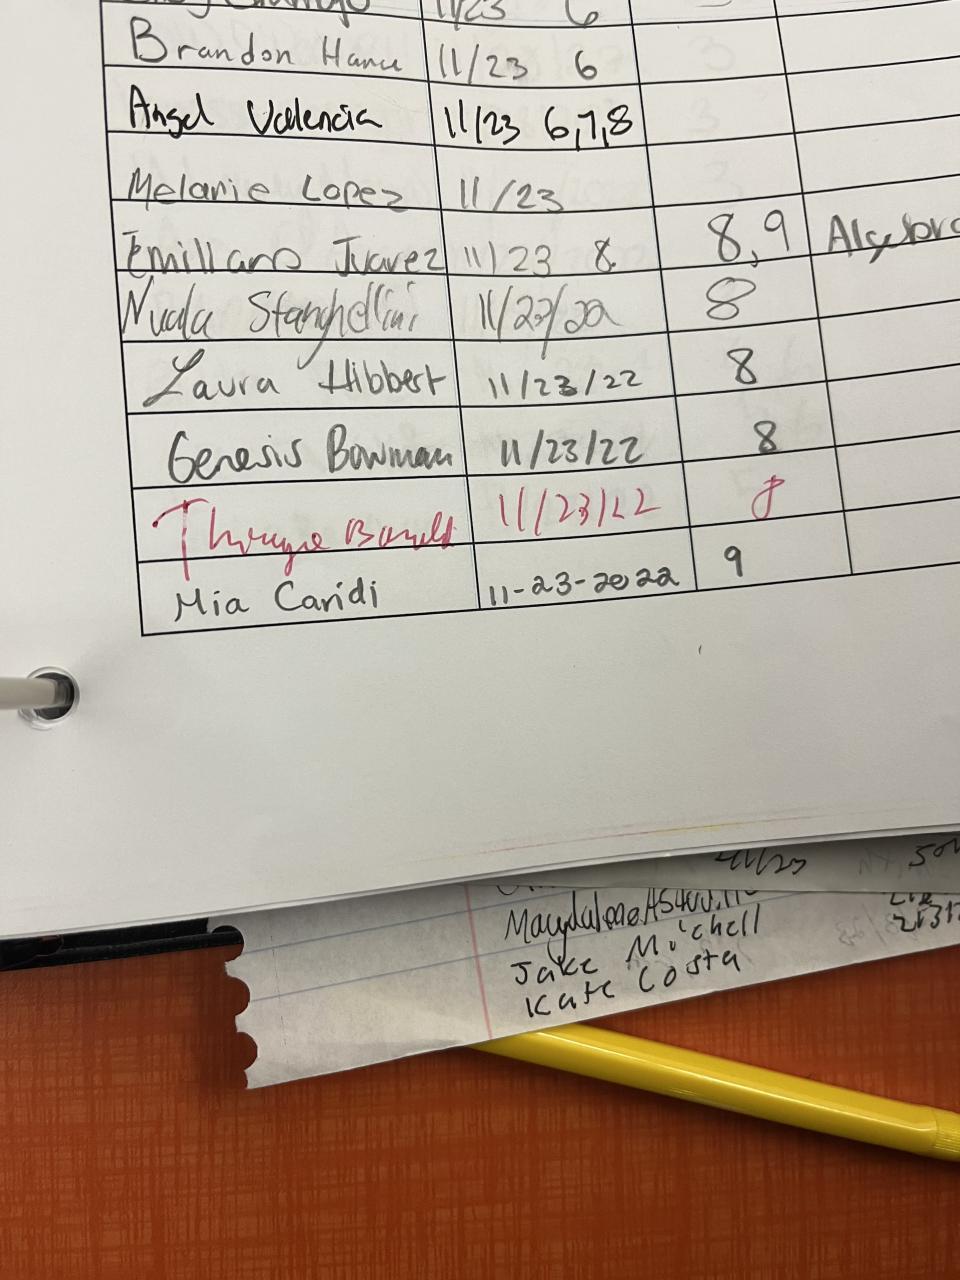 11/23 6
Brandon Hanu 11/23 6
Angel Valencia 11/23 6,7,8
Melanie Lopez 11/23
Emiliano Juarez 11/23 8 8,9
Nuala Stanghellini 8
Laura Hibbert 11/23/22 8
Genesis Bowman 11/23/22 8
11/23/22 8
Mia Caridi 11-23-2022 9
Jake Michell
Kate Costa